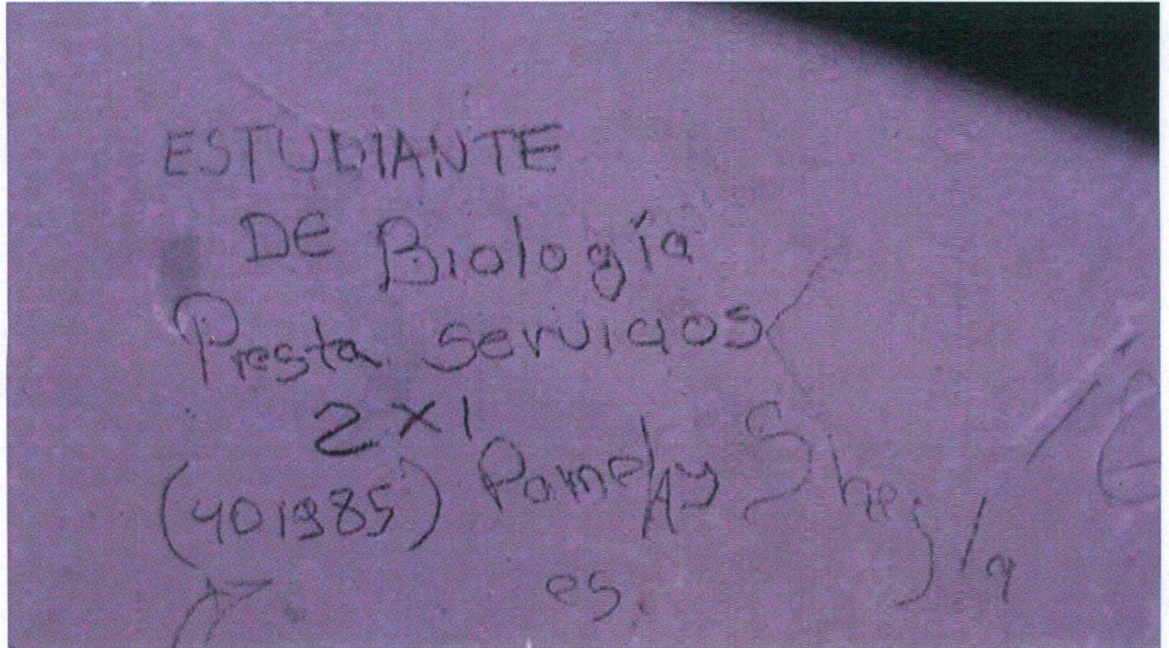 ESTUDIANTE
DE Biología
Presta servicios
2x1
(401985) Pamela y Sheyla
es